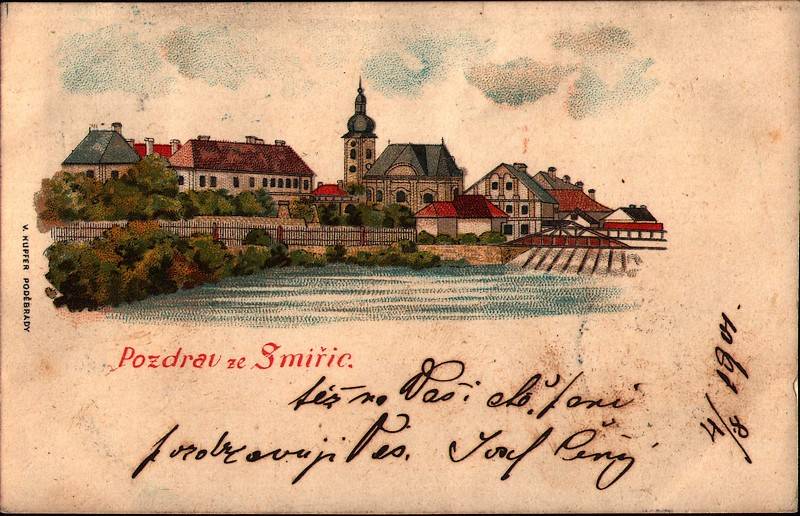 V. KUPFER PODĚBRADY
Pozdrav ze Smiřic.
též na Vaši
pozdravuji Vás. Josef Černý
4/8 1901.